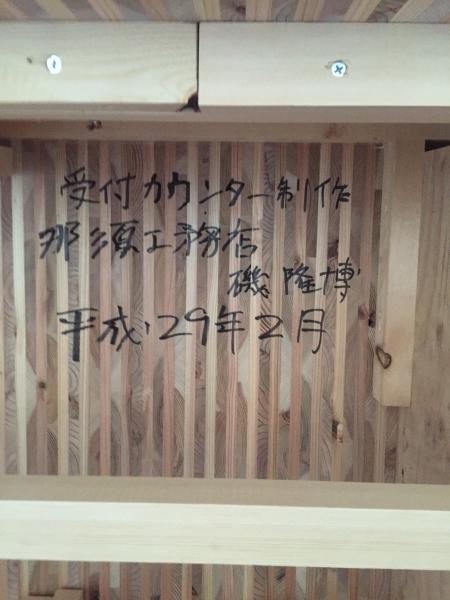 受付カウンター制作
那須工務店
磯 隆博
平成29年2月